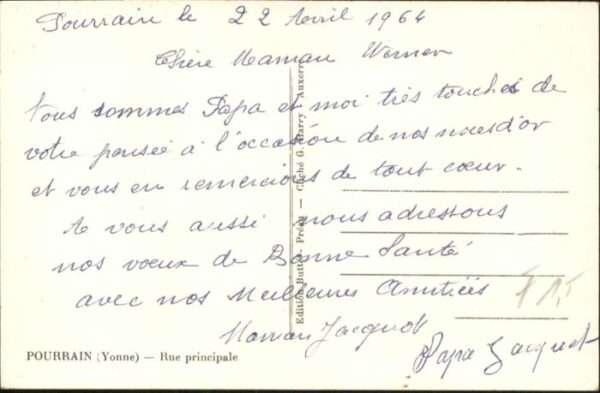 Pourrain le 22 Avril 1964
Chère Maman Werner
Nous sommes Papa et moi très touchés de
votre pensée à l'occasion de nos noces d'or
et vous en remercions de tout coeur.
A vous aussi nous adressons
nos voeux de Bonne Santé
avec nos Meilleures Amitiés
Maman Jacquot
Papa Jacquot
POURRAIN (Yonne) — Rue principale
Edition Buttet, Précy — Cliché G. Marry Auxerre